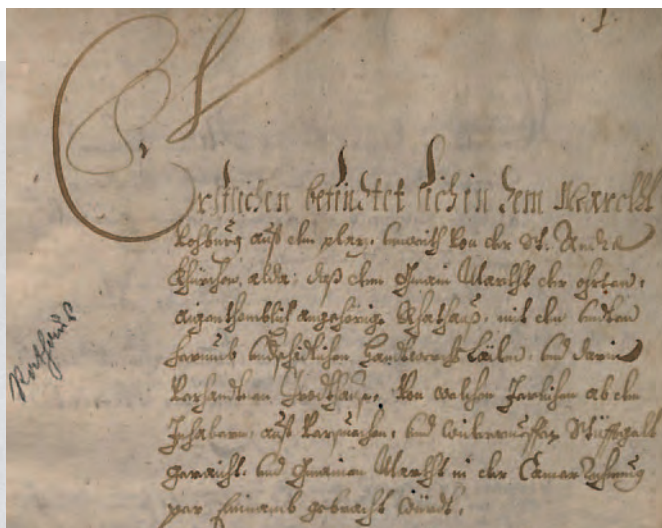 Erstlichen befindtet sich in dem Marckht
Vohburg auf dem plaz, unweith von der St. Andre
Khürchen, alda, daß dem Gmain Marckht der ohrten,
aigenthomblich angehörige Rhathauß, mit den
herumb Handtwerchs Läden, und darin
Verhandtnen Brodthauß, Von welchen Jerlichen ab den
Inhabern, auf und Stüfftgelt
geraicht, und Gmainen Marckht in der Camer Rechnung
per Einnamb gebracht würdt.
Rathaus